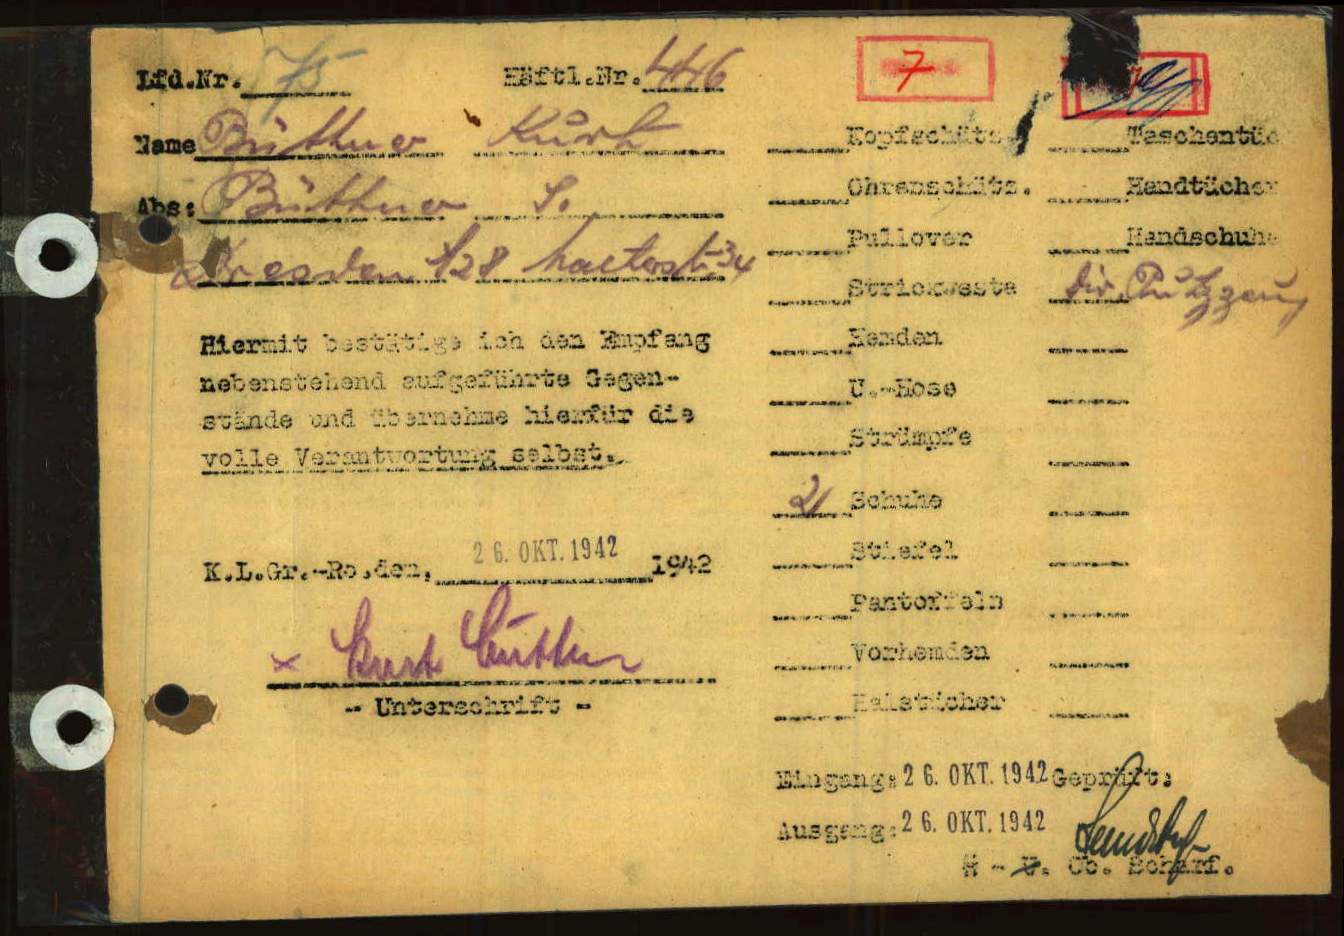 Lfd.Nr. 75 Häftl.Nr. 446
7
Name Büttner Kurt
Abs: Büttner S.
Dresden A28 34
Hiermit bestätige ich den Empfang
nebenstehend aufgeführte Gegen-
stände und übernehme hierfür die
volle Verantwortung selbst.
K.L.Gr.-Ro.,den, 26. OKT. 1942 1942
x Kurt Büttner
- Unterschrift -
Kopfschütz. Taschentüc
Ohrenschütz. Handtücher
Pullover Handschuhe
Strickweste div. Putzzeug
Hemden
U.-Hose
Strümpfe
2 Schuhe
Stiefel
Pantoffeln
Vorhemden
Halstücher
Eingang: 26. OKT. 1942 Geprüft:
Ausgang: 26. OKT. 1942
ᛋᛋ - U. Ob. Scharf.